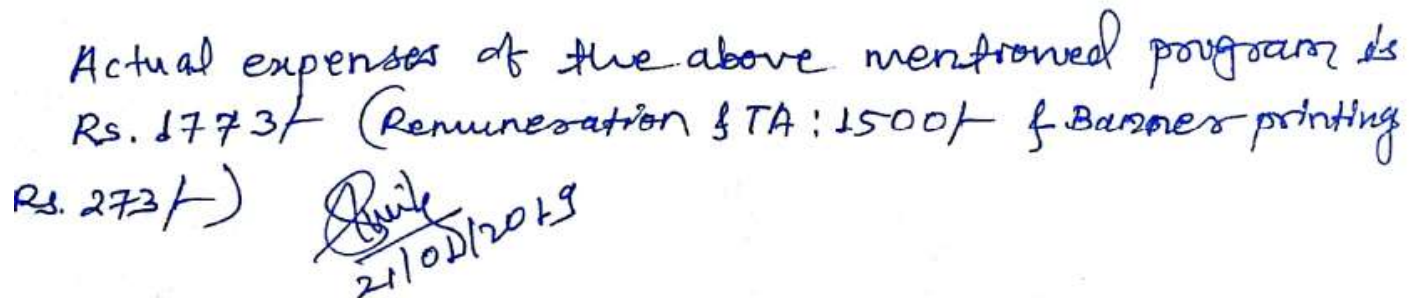 Actual expenses of the above mentioned program is
Rs. 1773/- (Remuneration & TA : 1500/- & Banner printing
Rs. 273/-)
21/01/2019